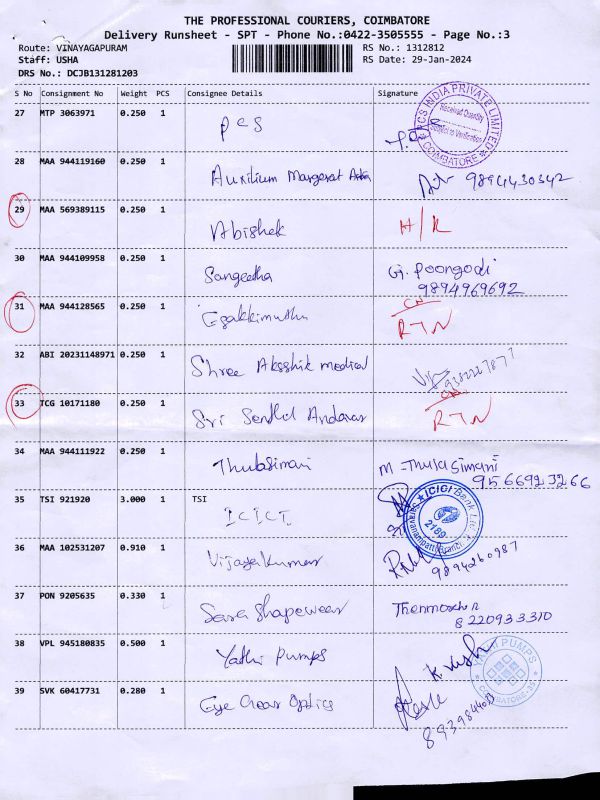 THE PROFESSIONAL COURIERS, COIMBATORE
Delivery Runsheet - SPT - Phone No.:0422-3505555 - Page No.:3
Route: VINAYAGAPURAM RS No.: 1312812
Staff: USHA RS Date: 29-Jan-2024
DRS No.: DCJB131281203
S No Consignment No Weight PCS Consignee Details Signature
27 MTP 3063971 0.250 1 PCS
PCS INDIA PRIVATE LIMITED
Received Quantity
Subject to Verification
COIMBATORE
28 MAA 944119160 0.250 1 Auxilium Margerat 9894430342
29 MAA 569389115 0.250 1 Abishek H/R
30 MAA 944109958 0.250 1 Sangeetha G. Poongodi
9894969692
31 MAA 944128565 0.250 1 Esakkimuthu CN
RTN
32 ABI 20231148971 0.250 1 Shree Akshik medical
33 TCG 10171180 0.250 1 Sri Senthil Andavar CN
RTN
34 MAA 944111922 0.250 1 Thulasimani M-Thulasimani
9566923266
35 TSI 921920 3.000 1 TSI
ICICI
ICICI Bank Ltd
2189
Branch
36 MAA 102531207 0.910 1 Vijayakumar
9894260987
37 PON 9205635 0.330 1 Sara Shapewear
8220933310
38 VPL 945180835 0.500 1 Yathi Pumps
PUMPS
COIMBATORE
39 SVK 60417731 0.280 1 Eye Gear Optics